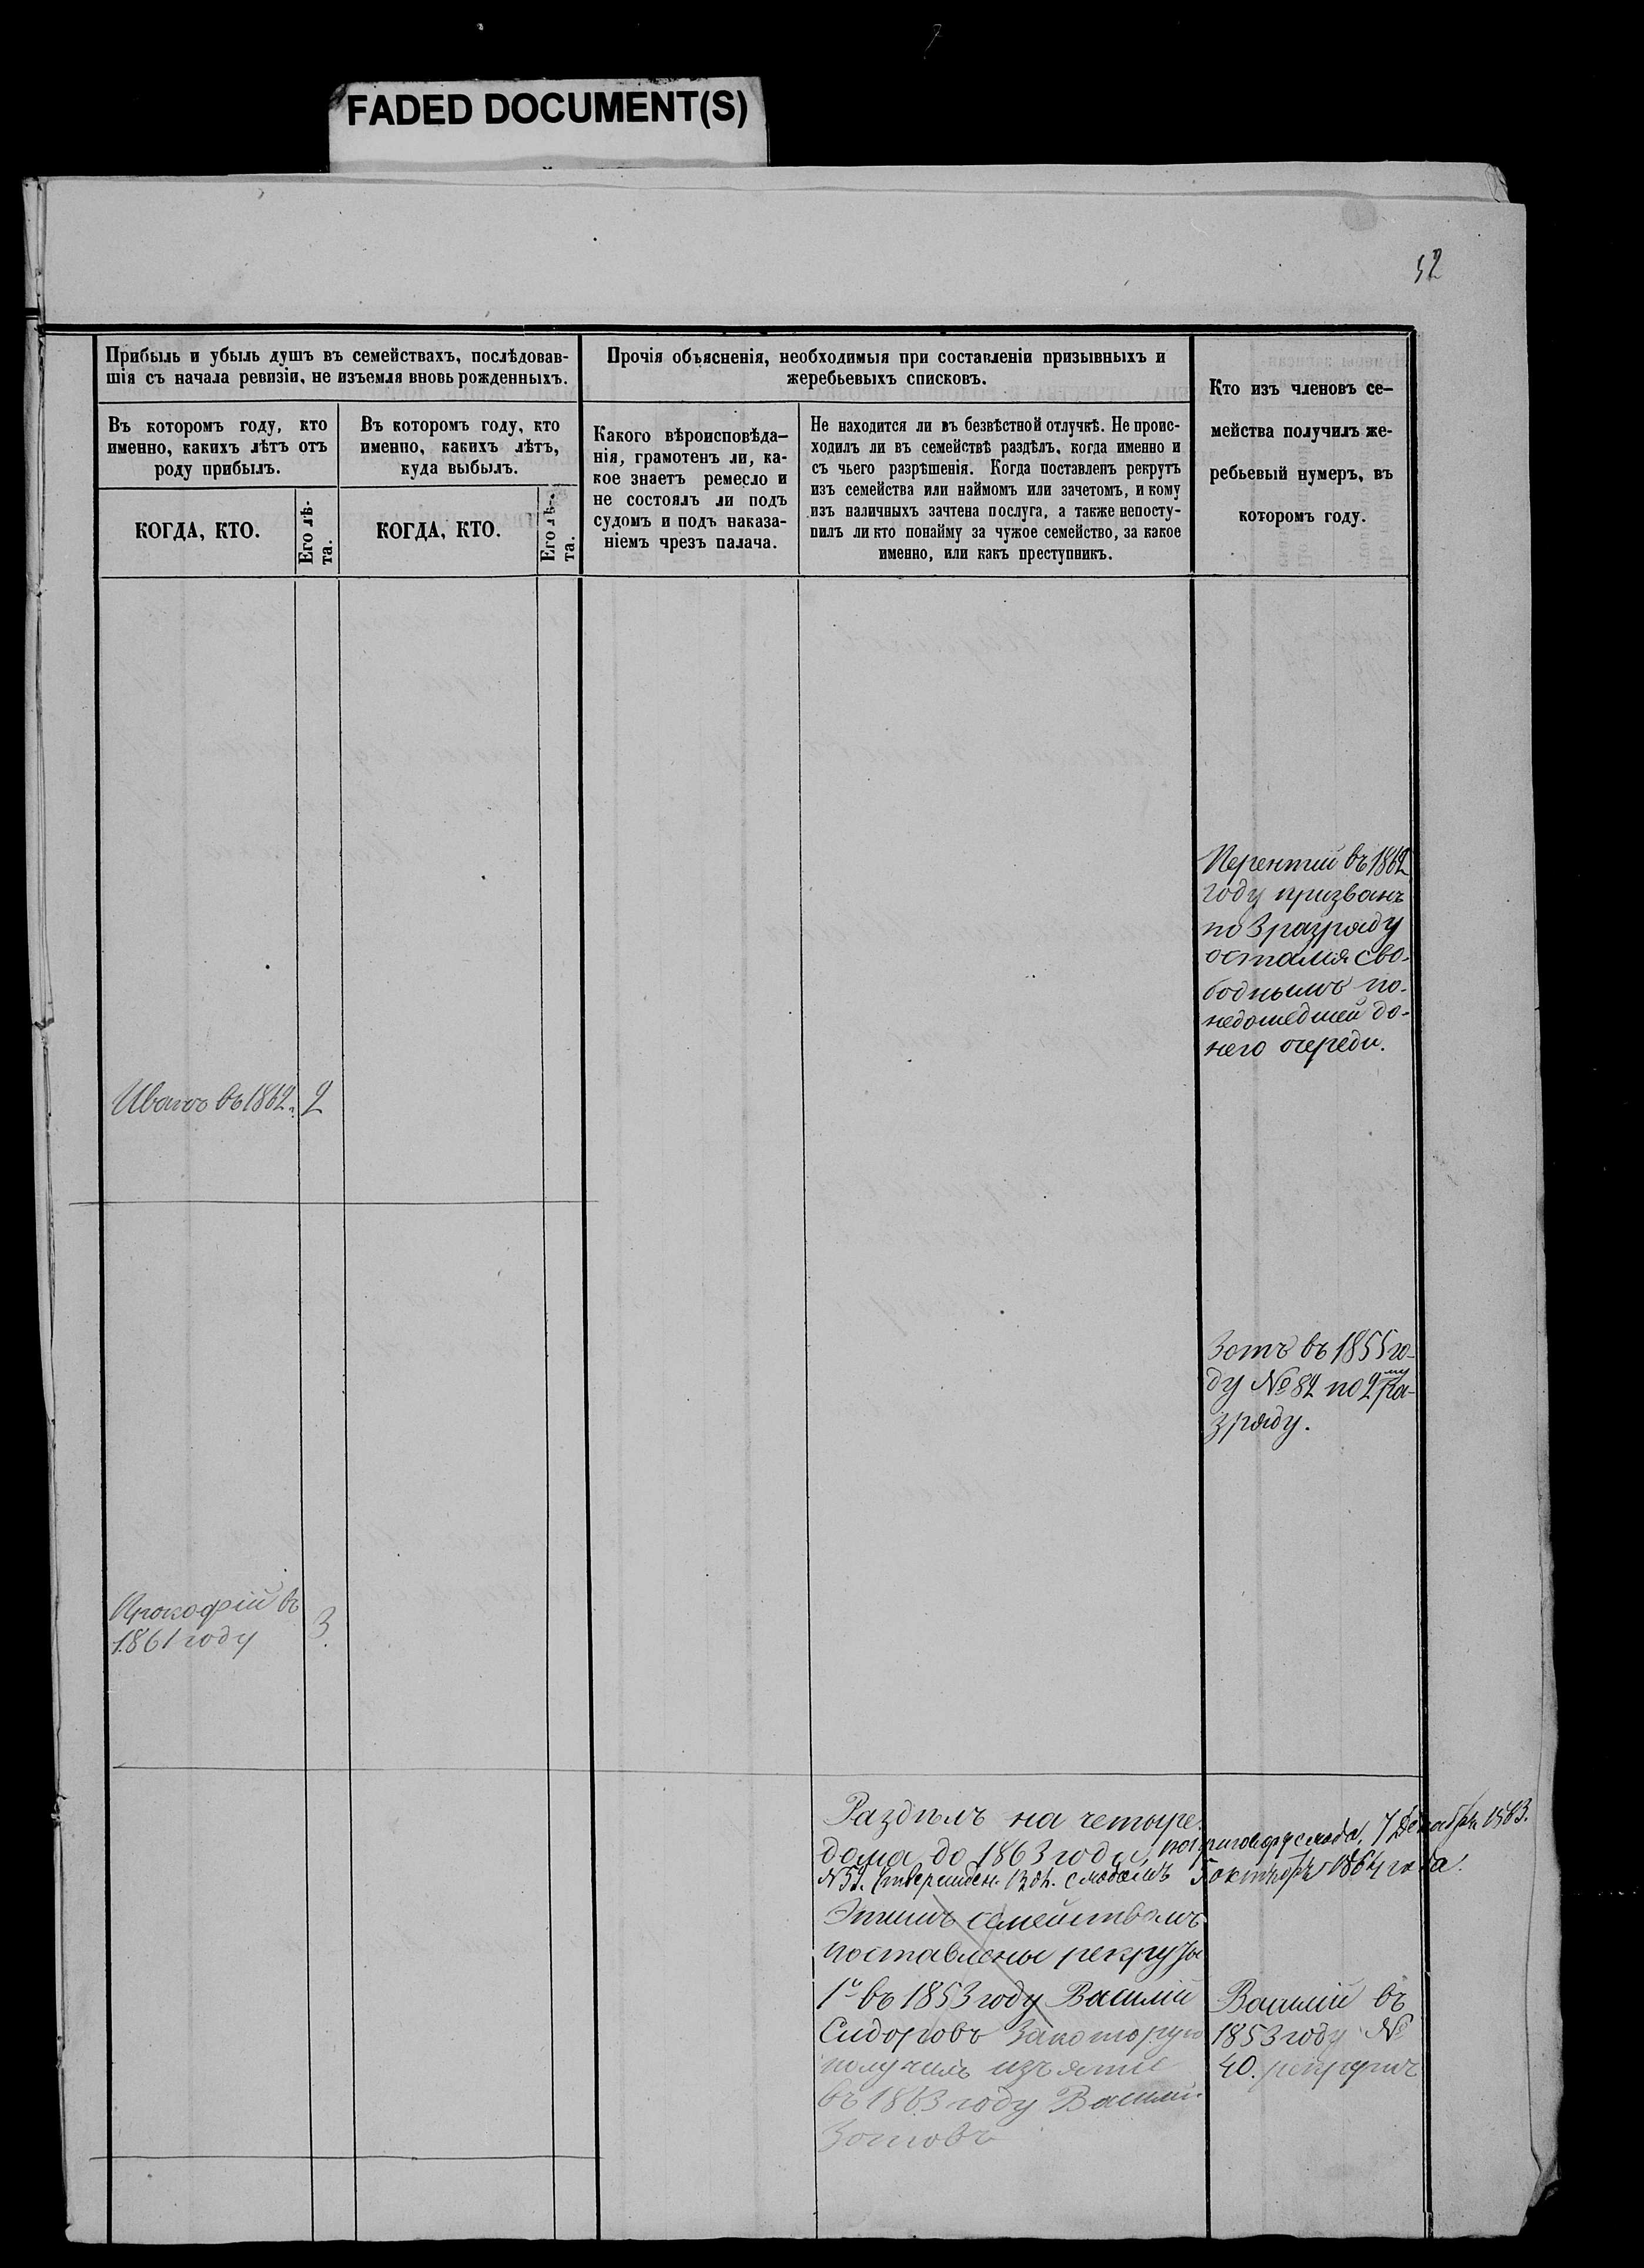 FADED DOCUMENT(S)
52
Прибыль и убыль душъ въ семействахъ, послѣдовав-
шія съ начала ревизіи, не изъемля вновь рожденныхъ.
Въ которомъ году, кто
именно, какихъ лѣтъ отъ
роду прибылъ.
КОГДА, КТО.
Его лѣ-
та.
Въ которомъ году, кто
именно, какихъ лѣтъ,
куда выбылъ.
КОГДА, КТО.
Его лѣ-
та.
Прочія объясненія, необходимыя при составленіи призывныхъ и
жеребьевыхъ списковъ.
Какого вѣроисповѣда-
нія, грамотенъ ли, ка-
кое знаетъ ремесло и
не состоялъ ли подъ
судомъ и подъ наказа-
ніемъ чрезъ палача.
Не находится ли въ безвѣстной отлучкѣ. Не проис-
ходилъ ли въ семействѣ раздѣлъ, когда именно и
съ чьего разрѣшенія. Когда поставленъ рекрутъ
изъ семейства или наймомъ или зачетомъ, и кому
изъ наличныхъ зачтена послуга, а также непосту-
пилъ ли кто понайму за чужое семейство, за какое
именно, или какъ преступникъ.
Кто изъ членовъ се-
мейства получилъ же-
ребьевый нумеръ, въ
которомъ году.
въ 1862
году призванъ
по 3 разряду
остался сво-
боднымъ по-
недошедшей до-
него очереди.
Иванъ въ 1862. 2
Зотъ въ 1855 го-
ду № 82 по 2му ра-
зряду.
Прокофій въ
1861 году 3.
Раздѣлъ на четыре
дома до 1863 года, по приговору схода, 7 Декабря 1863.
N 52. 5 октября 1864 года.
Этимъ семействомъ
поставлены рекруты
1й въ 1853 году Василій
Сидоровъ за которую
получилъ изъятіе
въ 1863 году Василій
Зотовъ
Василій въ
1853 году №
40.